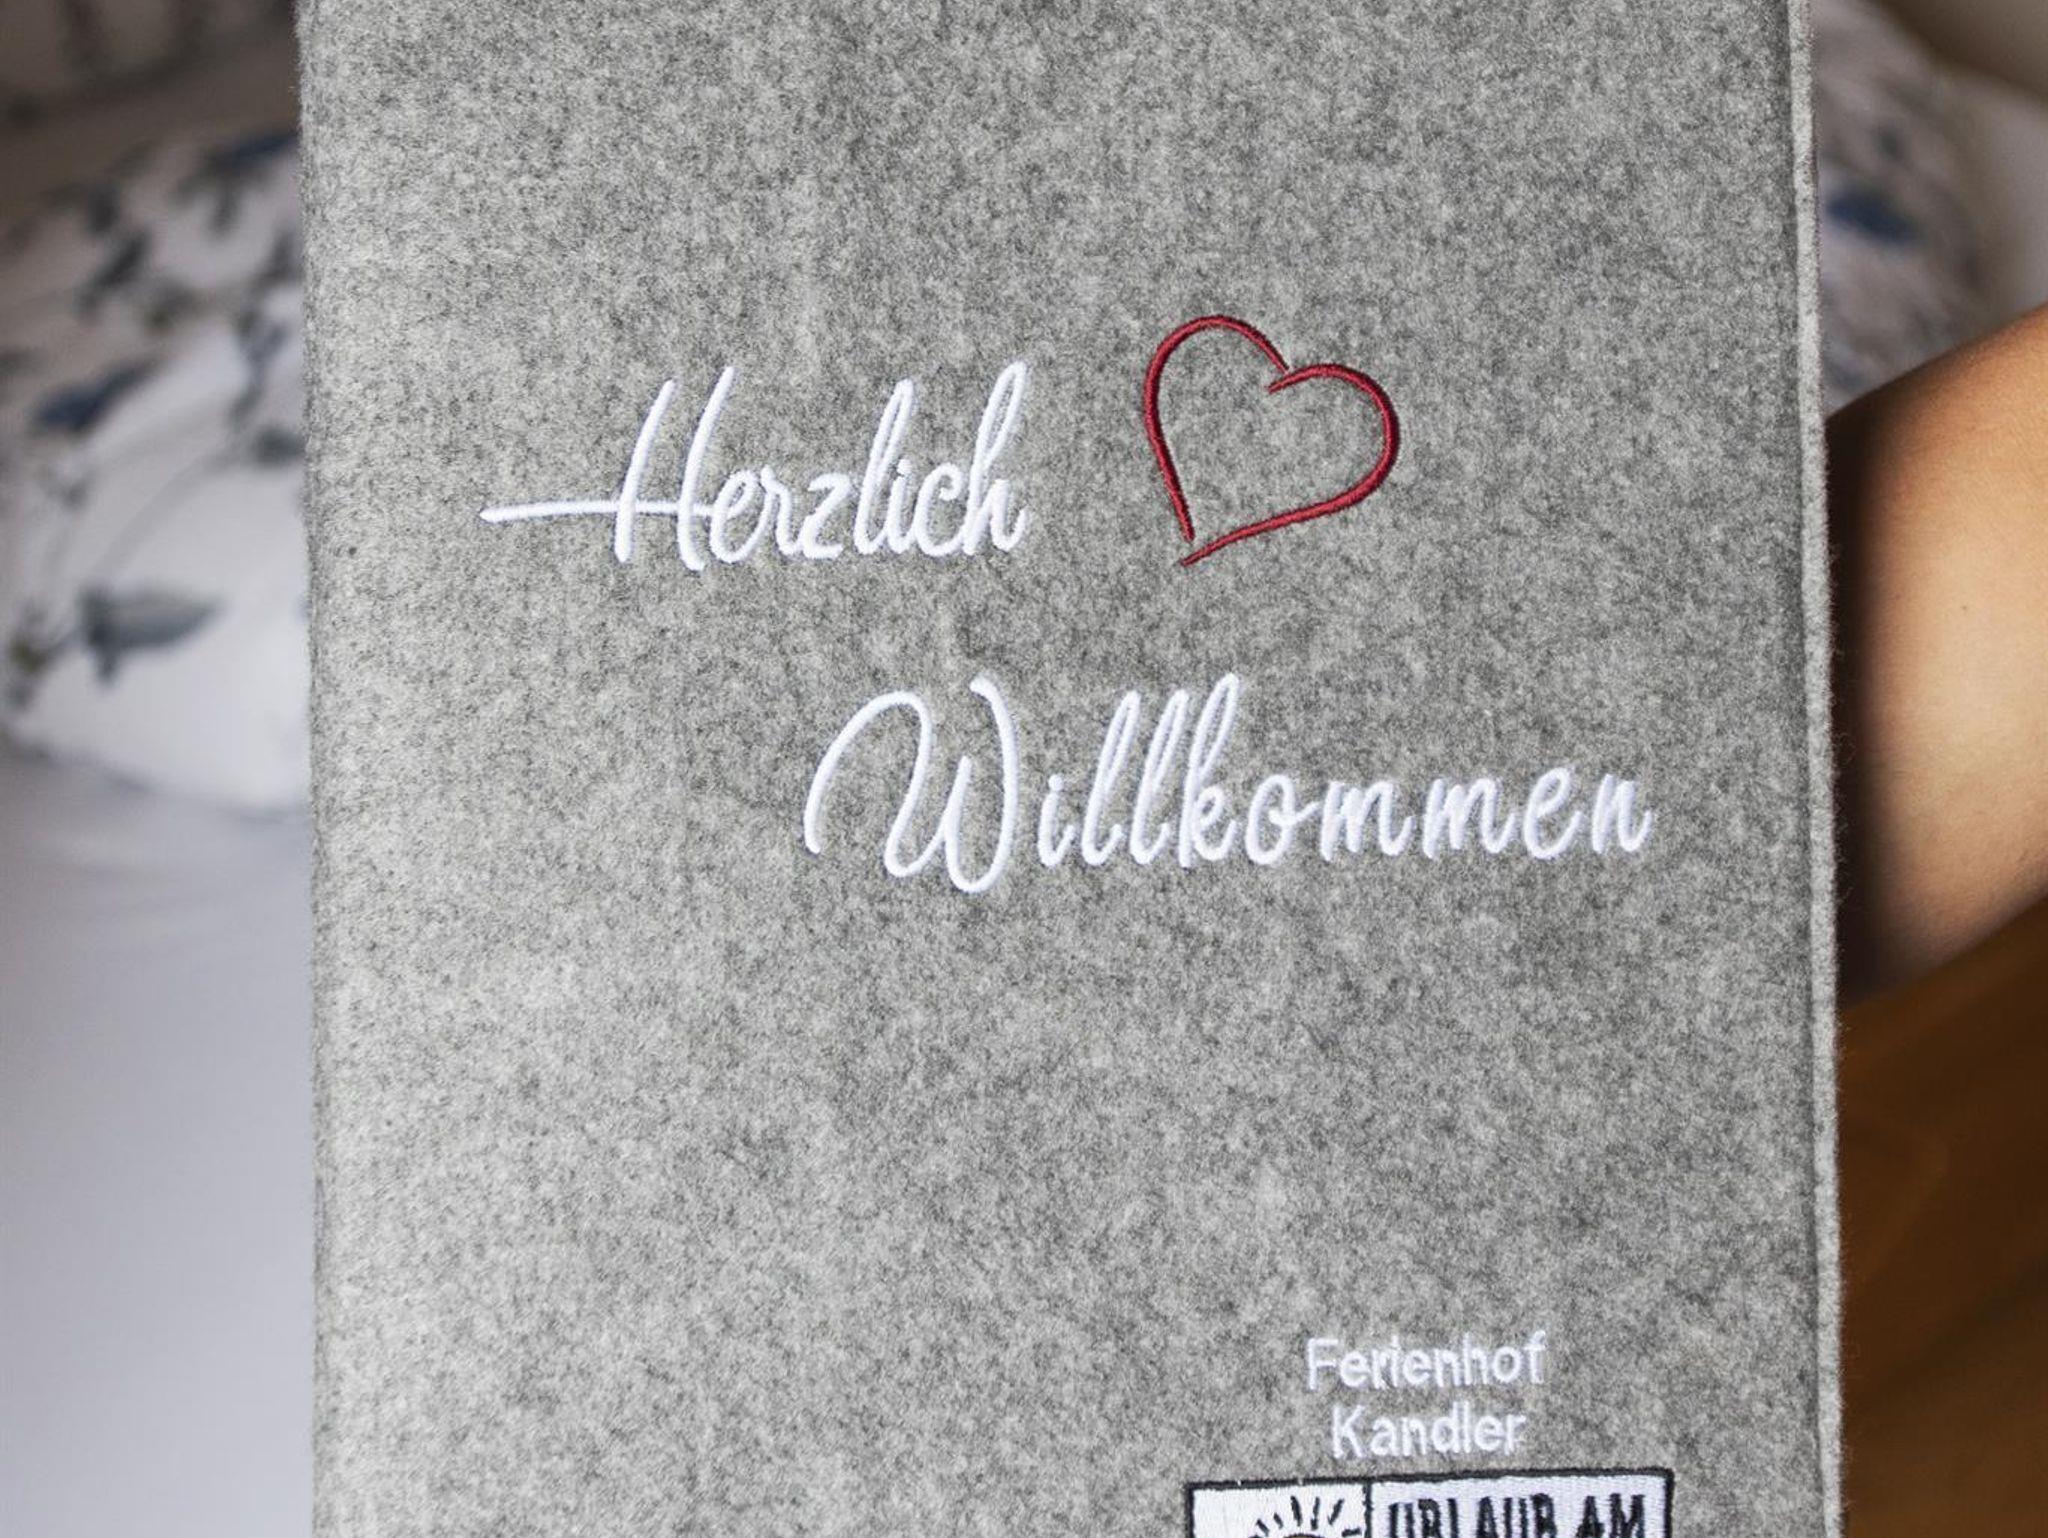 Herzlich
Willkommen
Ferienhof
Kandler
URLAUB AM